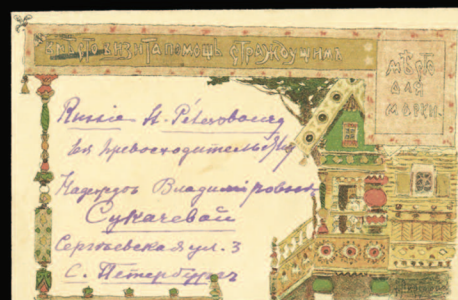 вмѣсто визита помощь страждущимъ
мѣсто
для
марки.
Russie St. Pétersbourg
Ея Превосходительству
Надеждѣ Владимировнѣ
Сукачевой
Сергіевская ул. 3
С. Петербургъ